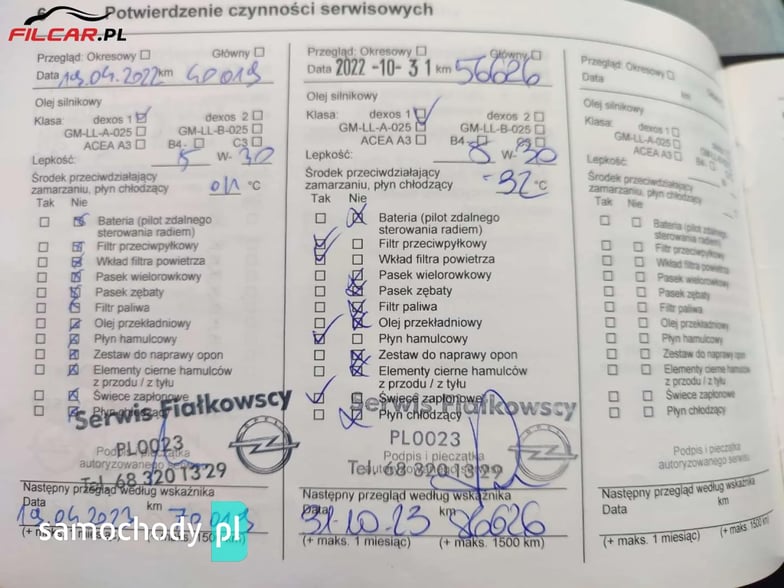 6 Potwierdzenie czynności serwisowych
FILCAR.PL
Przegląd: Okresowy Główny
Data 19.04.2022 km 40019
Olej silnikowy
Klasa: dexos 1 dexos 2
GM-LL-A-025 GM-LL-B-025
ACEA A3 B4- C3
Lepkość: 5 W- 30
Środek przeciwdziałający
zamarzaniu, płyn chłodzący °C
Tak Nie
Bateria (pilot zdalnego
sterowania radiem)
Filtr przeciwpyłkowy
Wkład filtra powietrza
Pasek wielorowkowy
Pasek zębaty
Filtr paliwa
Olej przekładniowy
Płyn hamulcowy
Zestaw do naprawy opon
Elementy cierne hamulców
z przodu / z tyłu
Świece zapłonowe
Płyn chłodzący
Serwis Fiałkowscy
PL0023
OPEL
Podpis i pieczątka
autoryzowanego serwisu
Tel. 68 320 13 29
Następny przegląd według wskaźnika
Data km
19.04.2023 70019
(+ maks. 1 miesiąc) (+ maks. 1500 km)
samochody.pl
Przegląd: Okresowy Główny
Data 2022 -10- 31 km 56626
Olej silnikowy
Klasa: dexos 1 dexos 2
GM-LL-A-025 GM-LL-B-025
ACEA A3 B4- C3
Lepkość: 5 W- 30
Środek przeciwdziałający
zamarzaniu, płyn chłodzący -32 °C
Tak Nie
Bateria (pilot zdalnego
sterowania radiem)
Filtr przeciwpyłkowy
Wkład filtra powietrza
Pasek wielorowkowy
Pasek zębaty
Filtr paliwa
Olej przekładniowy
Płyn hamulcowy
Zestaw do naprawy opon
Elementy cierne hamulców
z przodu / z tyłu
Świece zapłonowe
Płyn chłodzący
Serwis Fiałkowscy
PL0023
OPEL
Podpis i pieczątka
autoryzowanego serwisu
Tel. 68 320 13 29
Następny przegląd według wskaźnika
Data km
31.10.23 86626
(+ maks. 1 miesiąc) (+ maks. 1500 km)
Przegląd: Okresowy
Data km
Olej silnikowy
Klasa: dexos 1
GM-LL-A-025
ACEA A3 B4-
Lepkość:
Środek przeciwdziałający
zamarzaniu, płyn chłodzący
Tak Nie
Bateria (pilot zdalnego
sterowania radiem)
Filtr przeciwpyłkowy
Wkład filtra powietrza
Pasek wielorowkowy
Pasek zębaty
Filtr paliwa
Olej przekładniowy
Płyn hamulcowy
Zestaw do naprawy opon
Elementy cierne hamulców
z przodu / z tyłu
Świece zapłonowe
Płyn chłodzący
Podpis i pieczątka
autoryzowanego serwisu
Następny przegląd według wskaźnika
Data km
(+ maks. 1 miesiąc) (+ maks. 1500 km)